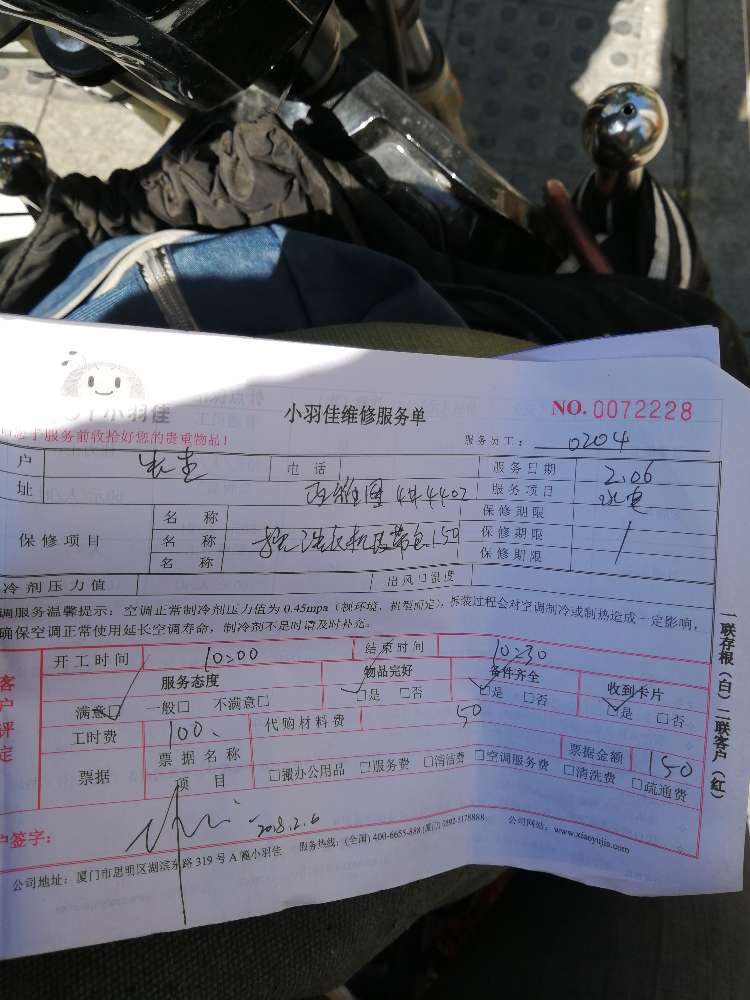 小羽佳
小羽佳维修服务单
NO. 0072228
于服务前收拾好您的贵重物品！
服务员工： 0204
户 电 话 服务日期 2.06
址 4#4402 服务项目 水电
名 称 保修期限
保修项目 名 称 洗衣机皮带包150 保修期限
名 称 保修期限
冷剂压力值 出风口温度
调服务温馨提示：空调正常制冷剂压力值为 0.45mpa（视环境，机型而定），拆装过程会对空调制冷或制热造成一定影响，
确保空调正常使用延长空调寿命，制冷剂不足时请及时补充。
客户评定
开工时间 10:00 结束时间 10:30
服务态度 物品完好 备件齐全 收到卡片
满意□ 一般□ 不满意□ □是 □否 □是 □否 □是 □否
工时费 100 代购材料费 50
票据 票据名称 票据金额 150
项 目 □搬办公用品 □服务费 □清洁费 □空调服务费 □清洗费 □疏通费
户签字： 2018.2.6
公司地址：厦门市思明区湖滨东路 319 号 A 幢小羽佳 服务热线：(全国) 400-6655-888 (厦门) 0592-5178888 公司网站：www.xiaoyujia.com
一联存根（白）二联客户（红）